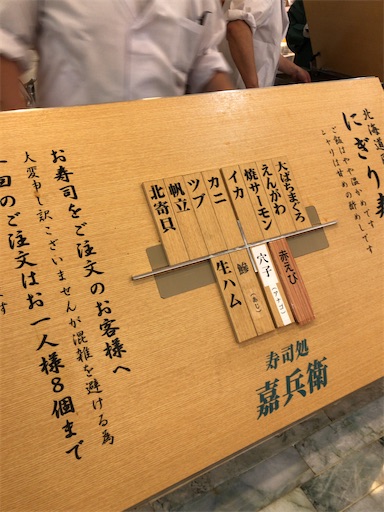 北海道
にぎり
ご飯はやや温かめです
シャリは甘めの酢めしです
大ばちまぐろ
えんがわ
焼サーモン
イカ
カニ
ツブ
帆立
北寄貝
赤えび
穴子(アナゴ)
鯵(あじ)
生ハム
寿司処
嘉兵衛
お寿司をご注文のお客様へ
大変申し訳ございませんが混雑を避ける為
一回のご注文はお一人様8個まで